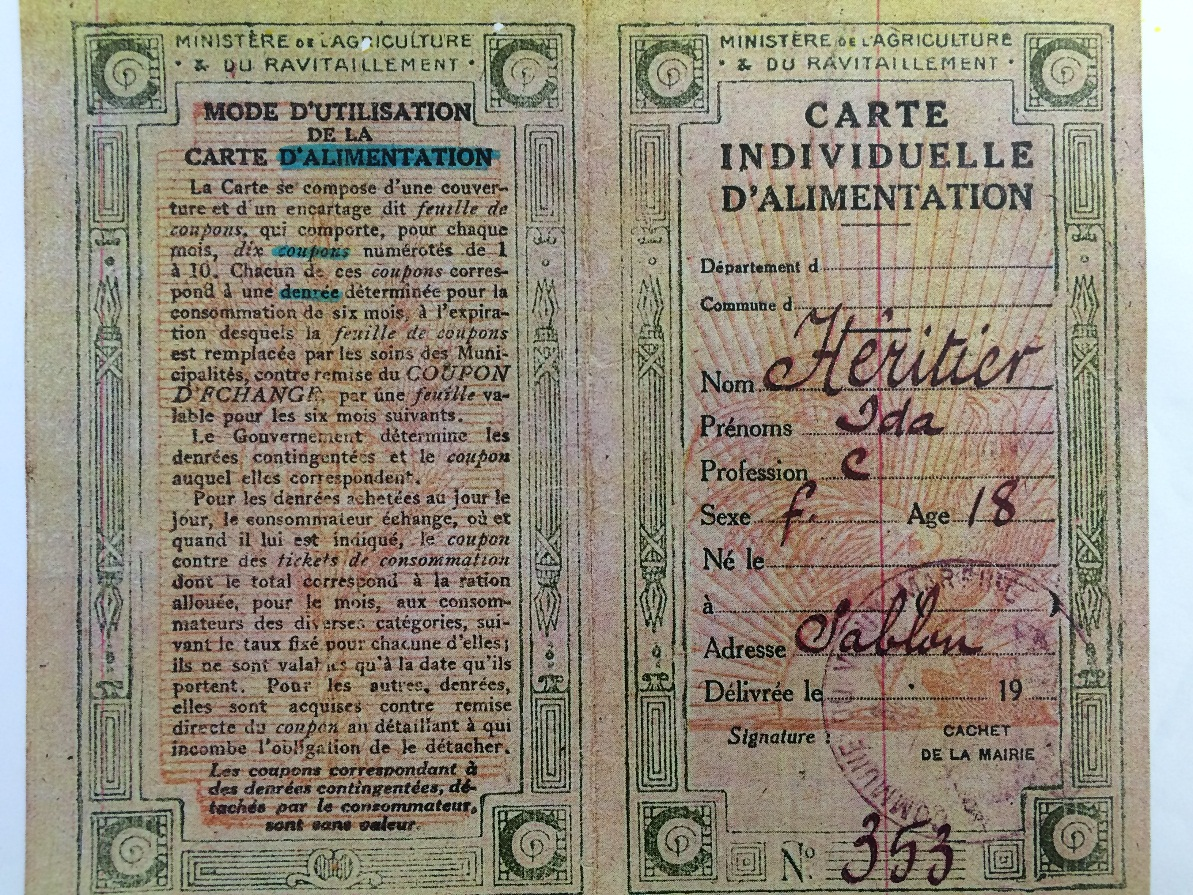 MINISTÈRE DE L'AGRICULTURE
• & DU RAVITAILLEMENT •
MODE D'UTILISATION
DE LA
CARTE D'ALIMENTATION
La Carte se compose d'une couver-
ture et d'un encartage dit feuille de
coupons, qui comporte, pour chaque
mois, dix coupons numérotés de 1
à 10. Chacun de ces coupons corres-
pond à une denrée déterminée pour la
consommation de six mois, à l'expira-
tion desquels la feuille de coupons
est remplacée par les soins des Muni-
cipalités, contre remise du COUPON
D'ÉCHANGE, par une feuille va-
lable pour les six mois suivants.
Le Gouvernement détermine les
denrées contingentées et le coupon
auquel elles correspondent.
Pour les denrées achetées au jour le
jour, le consommateur échange, où et
quand il lui est indiqué, le coupon
contre des tickets de consommation
dont le total correspond à la ration
allouée, pour le mois, aux consom-
mateurs des diverses catégories, sui-
vant le taux fixé pour chacune d'elles;
ils ne sont valables qu'à la date qu'ils
portent. Pour les autres, denrées,
elles sont acquises contre remise
directe du coupon au détaillant à qui
incombe l'obligation de le détacher.
Les coupons correspondant à
des denrées contingentées, dé-
tachés par le consommateur,
sont sans valeur.
MINISTÈRE DE L'AGRICULTURE
• & DU RAVITAILLEMENT •
CARTE
INDIVIDUELLE
D'ALIMENTATION
Département d
Commune d
Nom Héritier
Prénoms Ida
Profession C
Sexe f. Age 18
Né le
à
Adresse Sablon
Délivrée le 19
Signature :
CACHET
DE LA MAIRIE
COMMUNE
N° 353